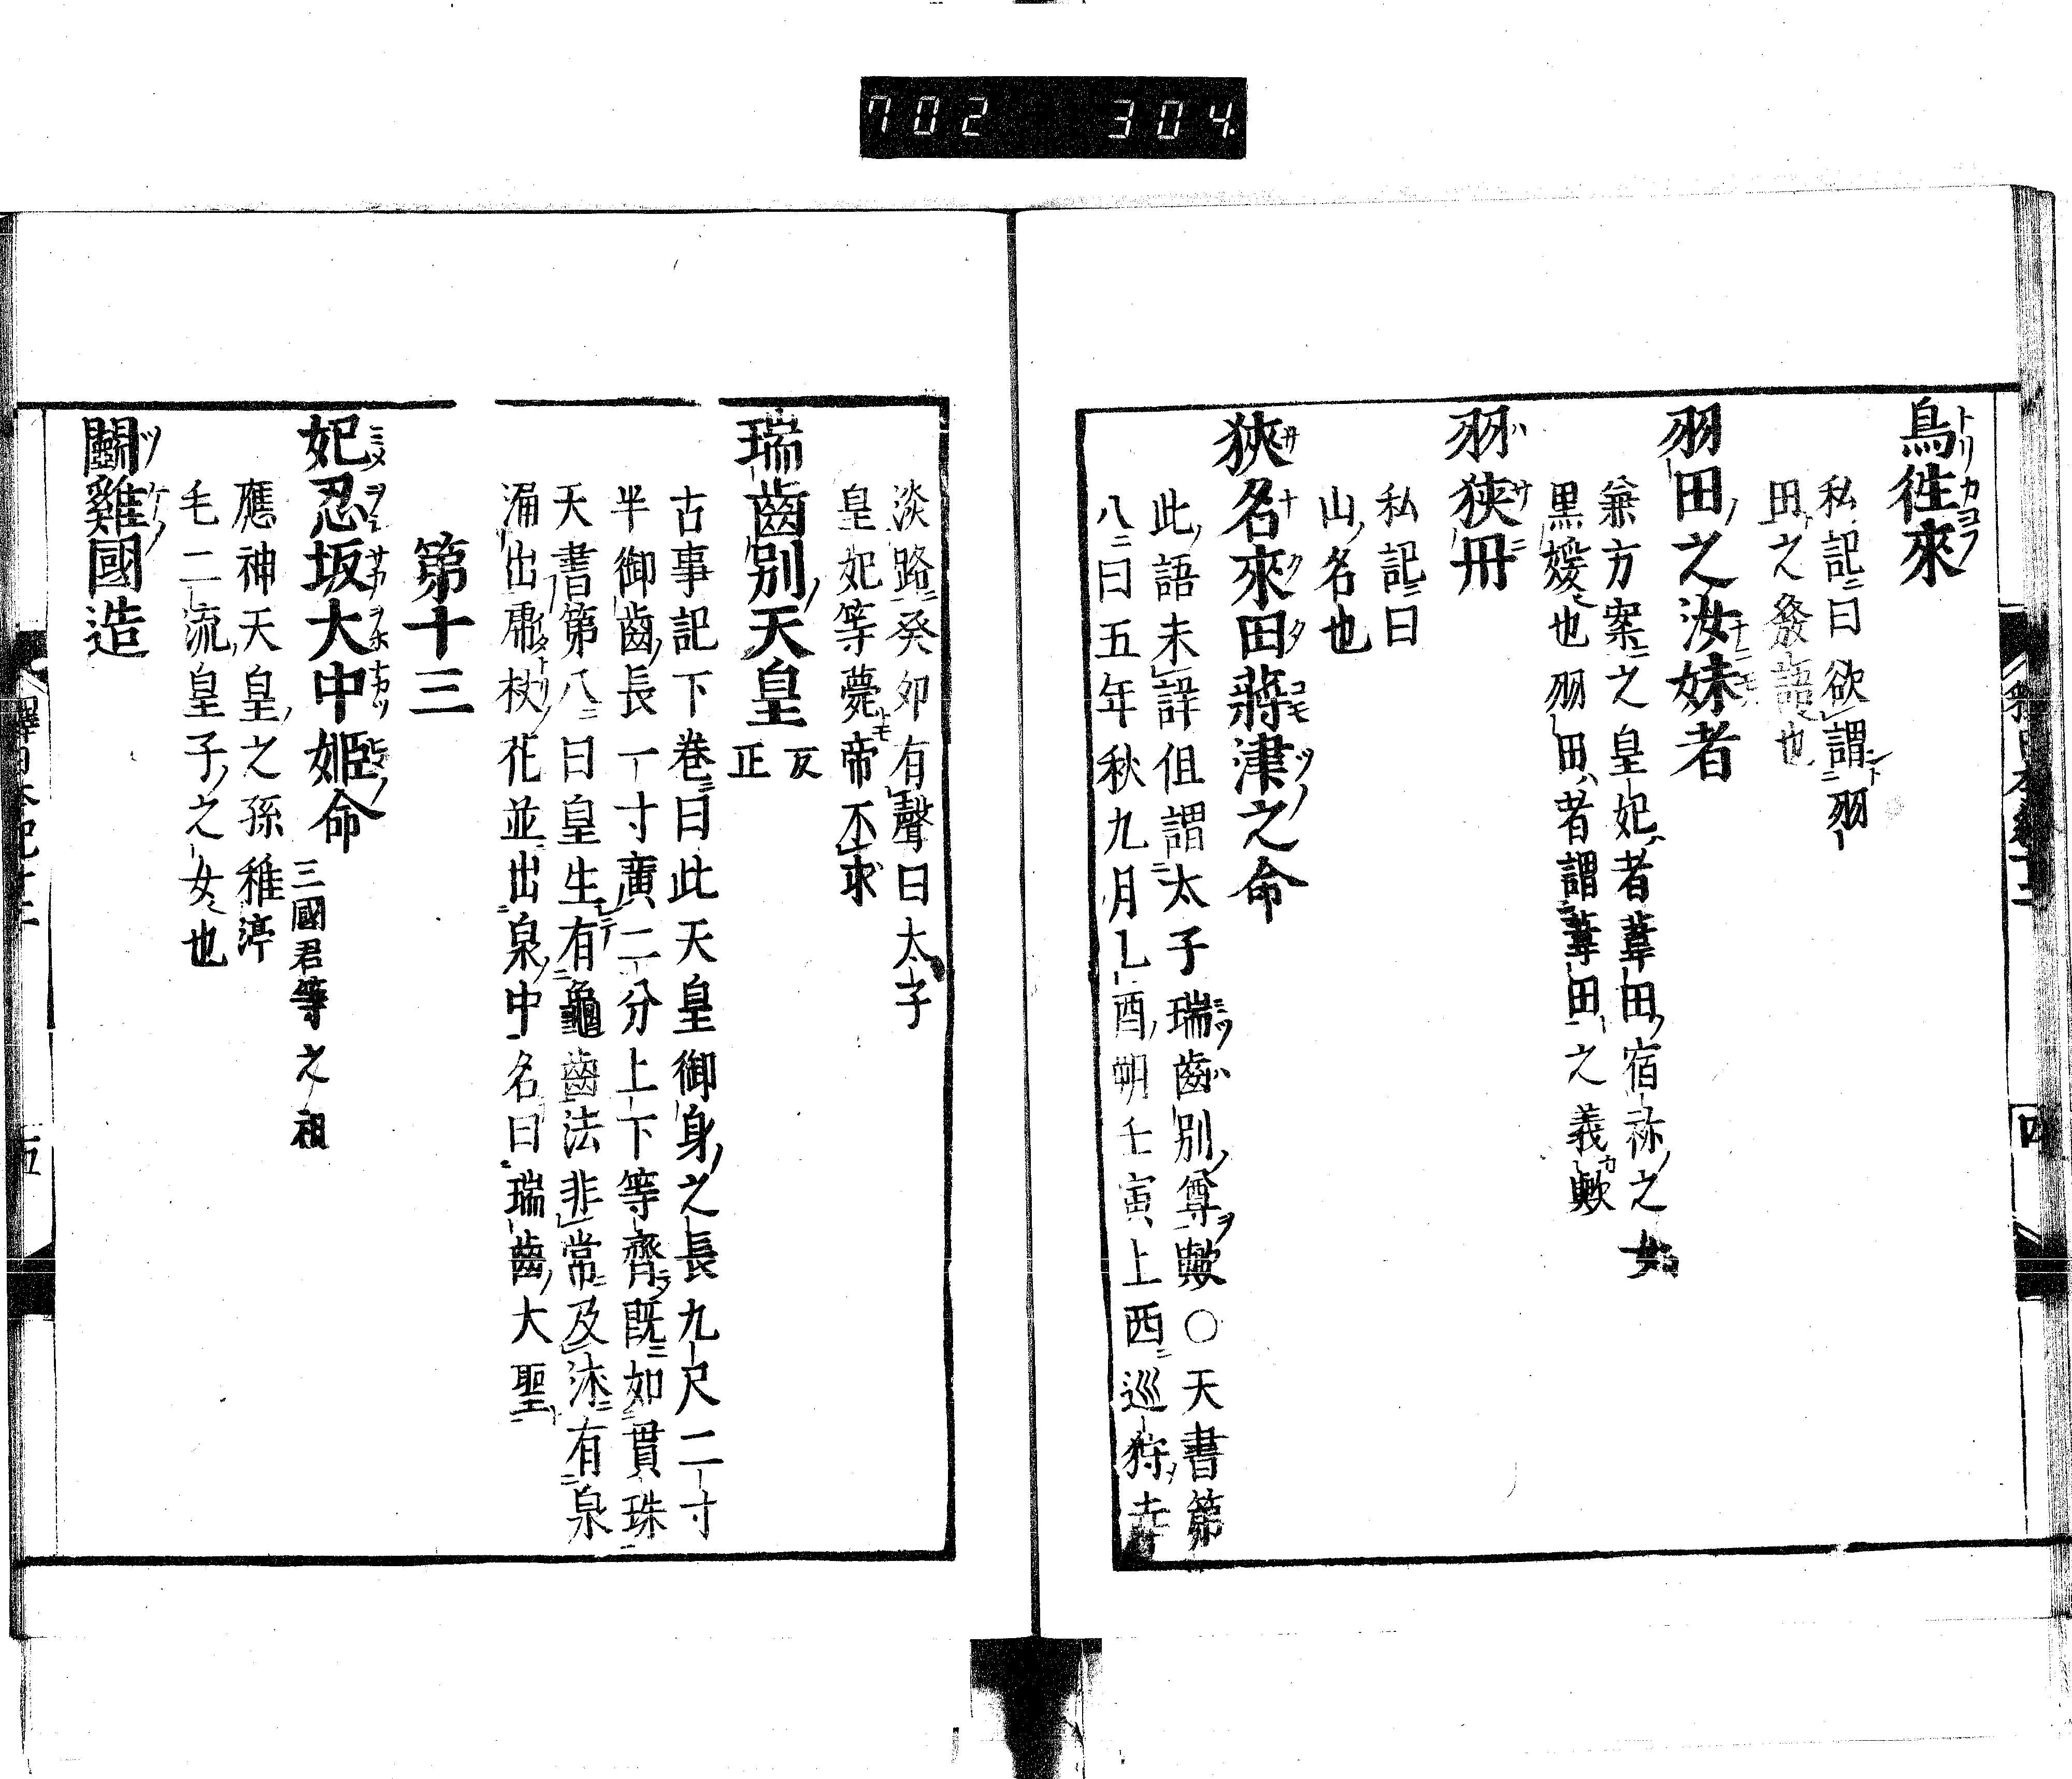 702 304
鳥徃來
私記曰欲謂羽
田之發語也
羽田之汝妹者
兼方案之皇妃者葦田宿祢之女
黒媛也羽田者謂葦田之義歟
羽狭丹
私記曰
山名也
狹名來田蔣津之命
此語未詳但謂太子瑞齒別尊歟○天書第
八曰五年秋九月乙酉朔壬寅上西巡狩幸
淡路癸卯有聲曰太子
皇妃等薨帝不求
瑞齒別天皇 反正
古事記下巻曰此天皇御身之長九尺二寸
半御齒長一寸廣二分上下等齊既如貫珠
天書第八曰皇生有龜齒法非常及沐有泉
涌出虎杖花並出泉中名曰瑞齒大聖
第十三
妃忍坂大中姫命 三國君等之祖
應神天皇之孫稚渟
毛二流皇子之女也
闘雞國造